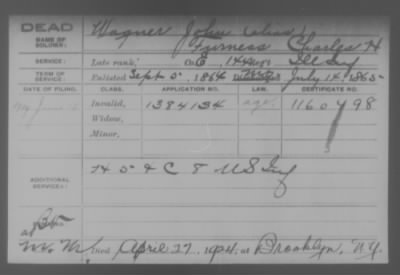 DEAD
NAME OF SOLDIER:
Wagner John alias
Furness Charles H
SERVICE:
Late rank, Co E, 144 Reg't Ill Inf
TERM OF SERVICE:
Enlisted Sept 5, 1864 July 14, 1865
DATE OF FILING.
CLASS.
APPLICATION NO.
LAW.
CERTIFICATE NO.
June
Invalid,
1384134
1160498
Widow,
Minor,
3
ADDITIONAL SERVICES:
H 5 & C 8 U S Inf
Died April 27, 1924, at Brooklyn, N.Y.